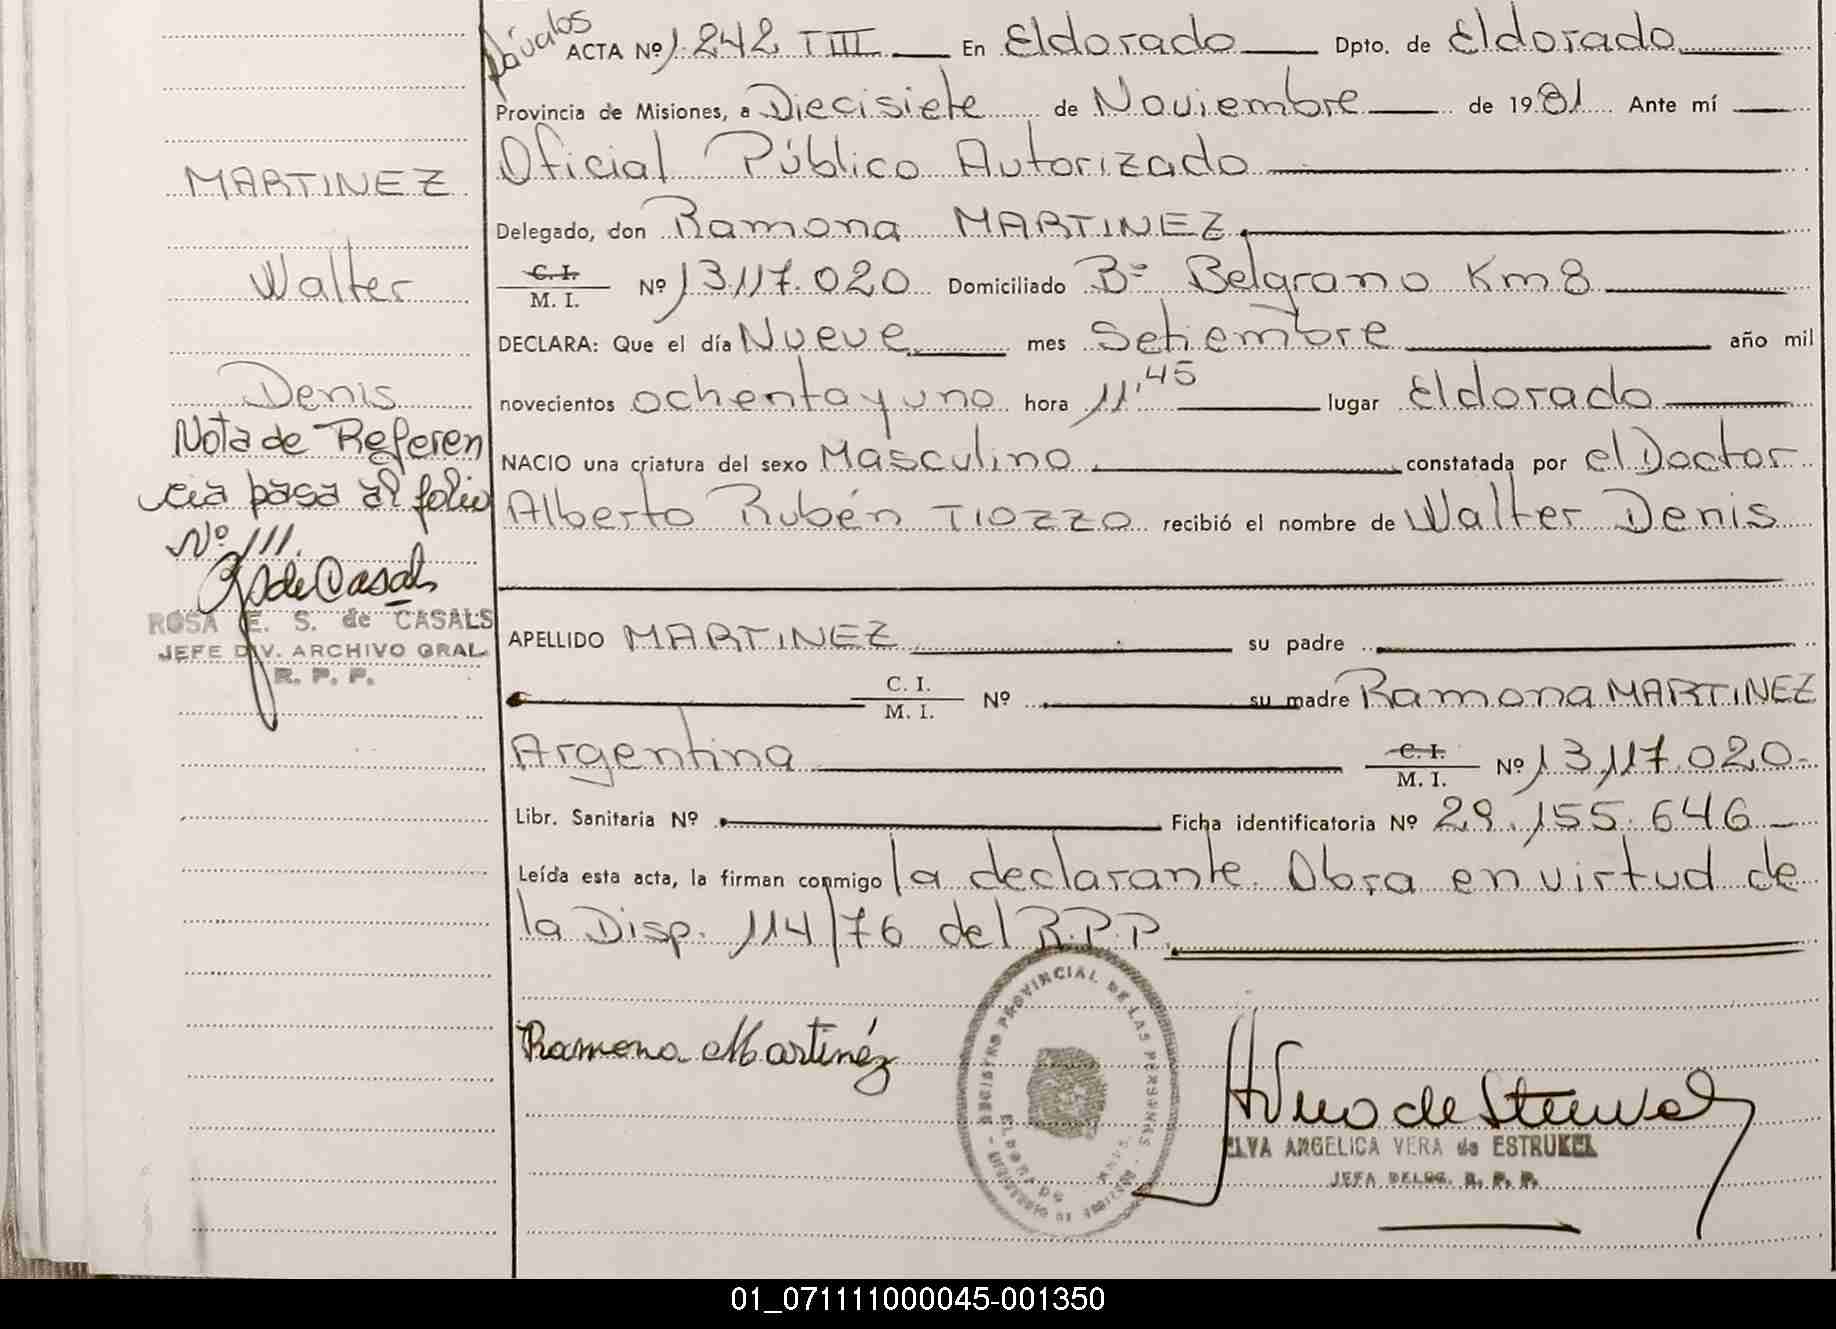 Dávalos
ACTA Nº 1.242 TIII En Eldorado Dpto. de Eldorado
Provincia de Misiones, a Diecisiete de Noviembre de 1981 Ante mí
Oficial Público Autorizado
Delegado, don Ramona MARTINEZ
C. I.
M. I. Nº 13.117.020 Domiciliado Bº Belgrano Km 8
DECLARA: Que el día Nueve mes Setiembre año mil
novecientos ochenta y uno hora 11,45 lugar Eldorado
NACIO una criatura del sexo Masculino constatada por el Doctor
Alberto Rubén TIOZZO recibió el nombre de Walter Denis
APELLIDO MARTINEZ su padre
C. I.
M. I. Nº su madre Ramona MARTINEZ
Argentina C. I.
M. I. Nº 13.117.020-
Libr. Sanitaria Nº Ficha identificatoria Nº 29.155.646
Leída esta acta, la firman conmigo la declarante. Obra en virtud de
la Disp. 114/76 del R.P.P.
MARTINEZ
Walter
Denis
Nota de Referen
cia pasa al folio
Nº 111.
de Casals
ROSA E. S. de CASALS
JEFE DIV. ARCHIVO GRAL.
R. P. P.
Ramona Martinéz
REGISTRO PROVINCIAL DE LAS PERSONAS
ELDORADO
ELVA ANGELICA VERA de ESTRUKEL
JEFA DELEG. R. P. P.
01_071111000045-001350